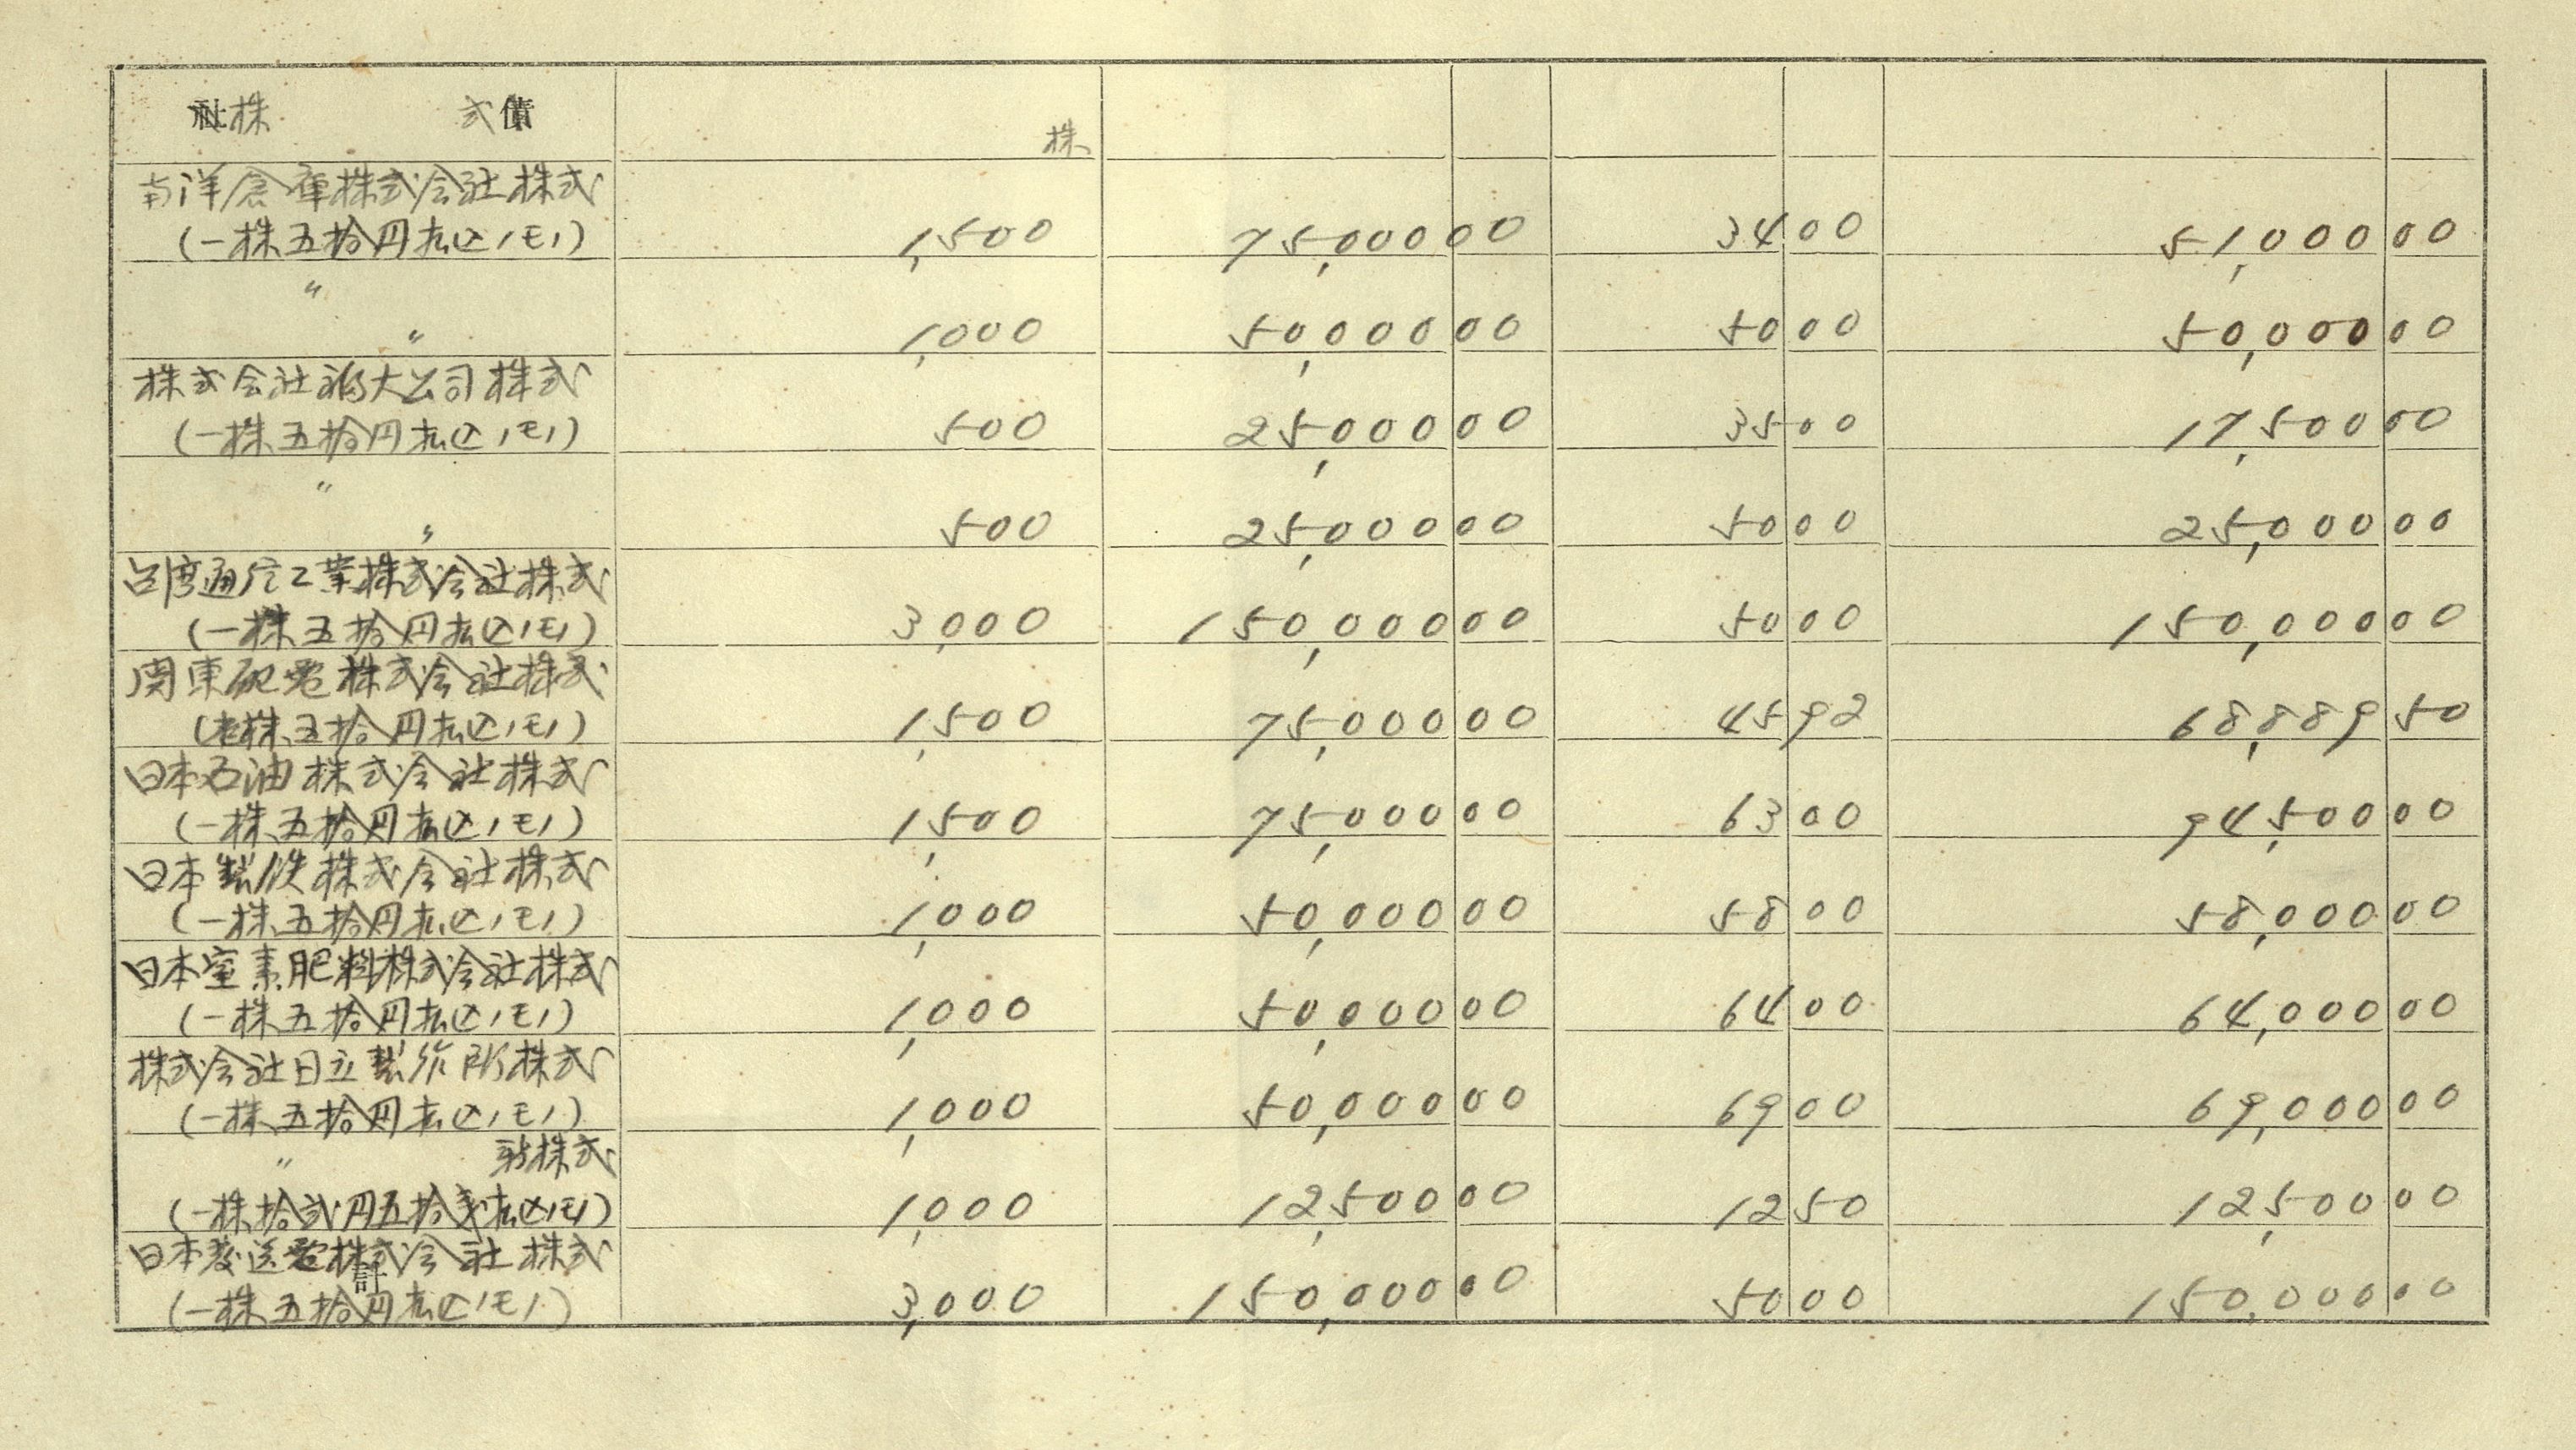 社株 式債
株
南洋倉庫株式会社株式
(一株五拾円払込ノモノ) 1,500 75,000 00 34 00 51,000 00
〃
〃 1,000 50,000 00 50 00 50,000 00
株式会社福大公司株式
(一株五拾円払込ノモノ) 500 25,000 00 35 00 17,500 00
〃
〃 500 25,000 00 50 00 25,000 00
台湾通信工業株式会社株式
(一株五拾円払込ノモノ) 3,000 150,000 00 50 00 150,000 00
関東配電株式会社株式
(株五拾円払込ノモノ) 1,500 75,000 00 45 92 68,889 50
日本石油株式会社株式
(一株五拾円払込ノモノ) 1,500 75,000 00 63 00 94,500 00
日本製鉄株式会社株式
(一株五拾円払込ノモノ) 1,000 50,000 00 58 00 58,000 00
日本窒素肥料株式会社株式
(一株五拾円払込ノモノ) 1,000 50,000 00 64 00 64,000 00
株式会社日立製作所株式
(一株五拾円払込ノモノ) 1,000 50,000 00 69 00 69,000 00
〃 新株式
(一株拾弐円五拾銭払込ノモノ) 1,000 12,500 00 12 50 12,500 00
日本発送電株式会社株式
計
(一株五拾円払込ノモノ) 3,000 150,000 00 50 00 150,000 00